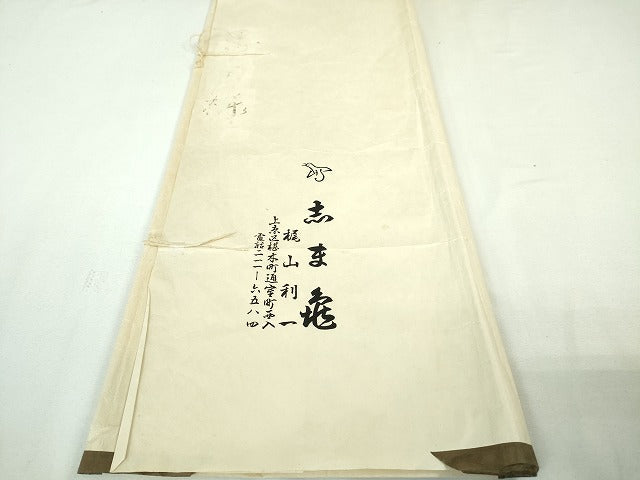 志ま亀
梶山利一
上京区椹木町通室町西入
電話二二一ー六五八四